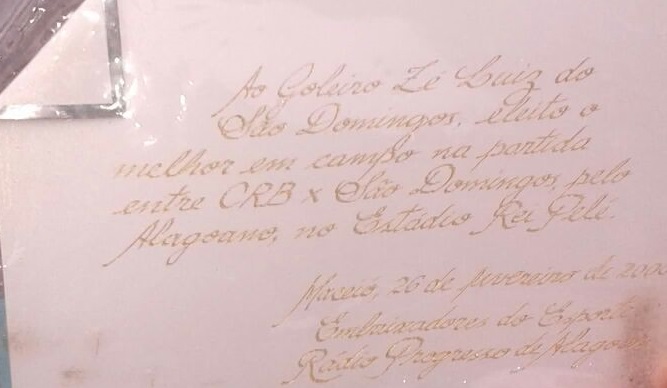 Ao Goleiro Zé Luiz do
São Domingos, eleito o
melhor em campo na partida
entre CRB x São Domingos, pelo
Alagoano, no Estádio Rei Pelé.
Maceió, 26 de fevereiro de
Embaixadores do Esporte
Rádio Progresso de Alagoas